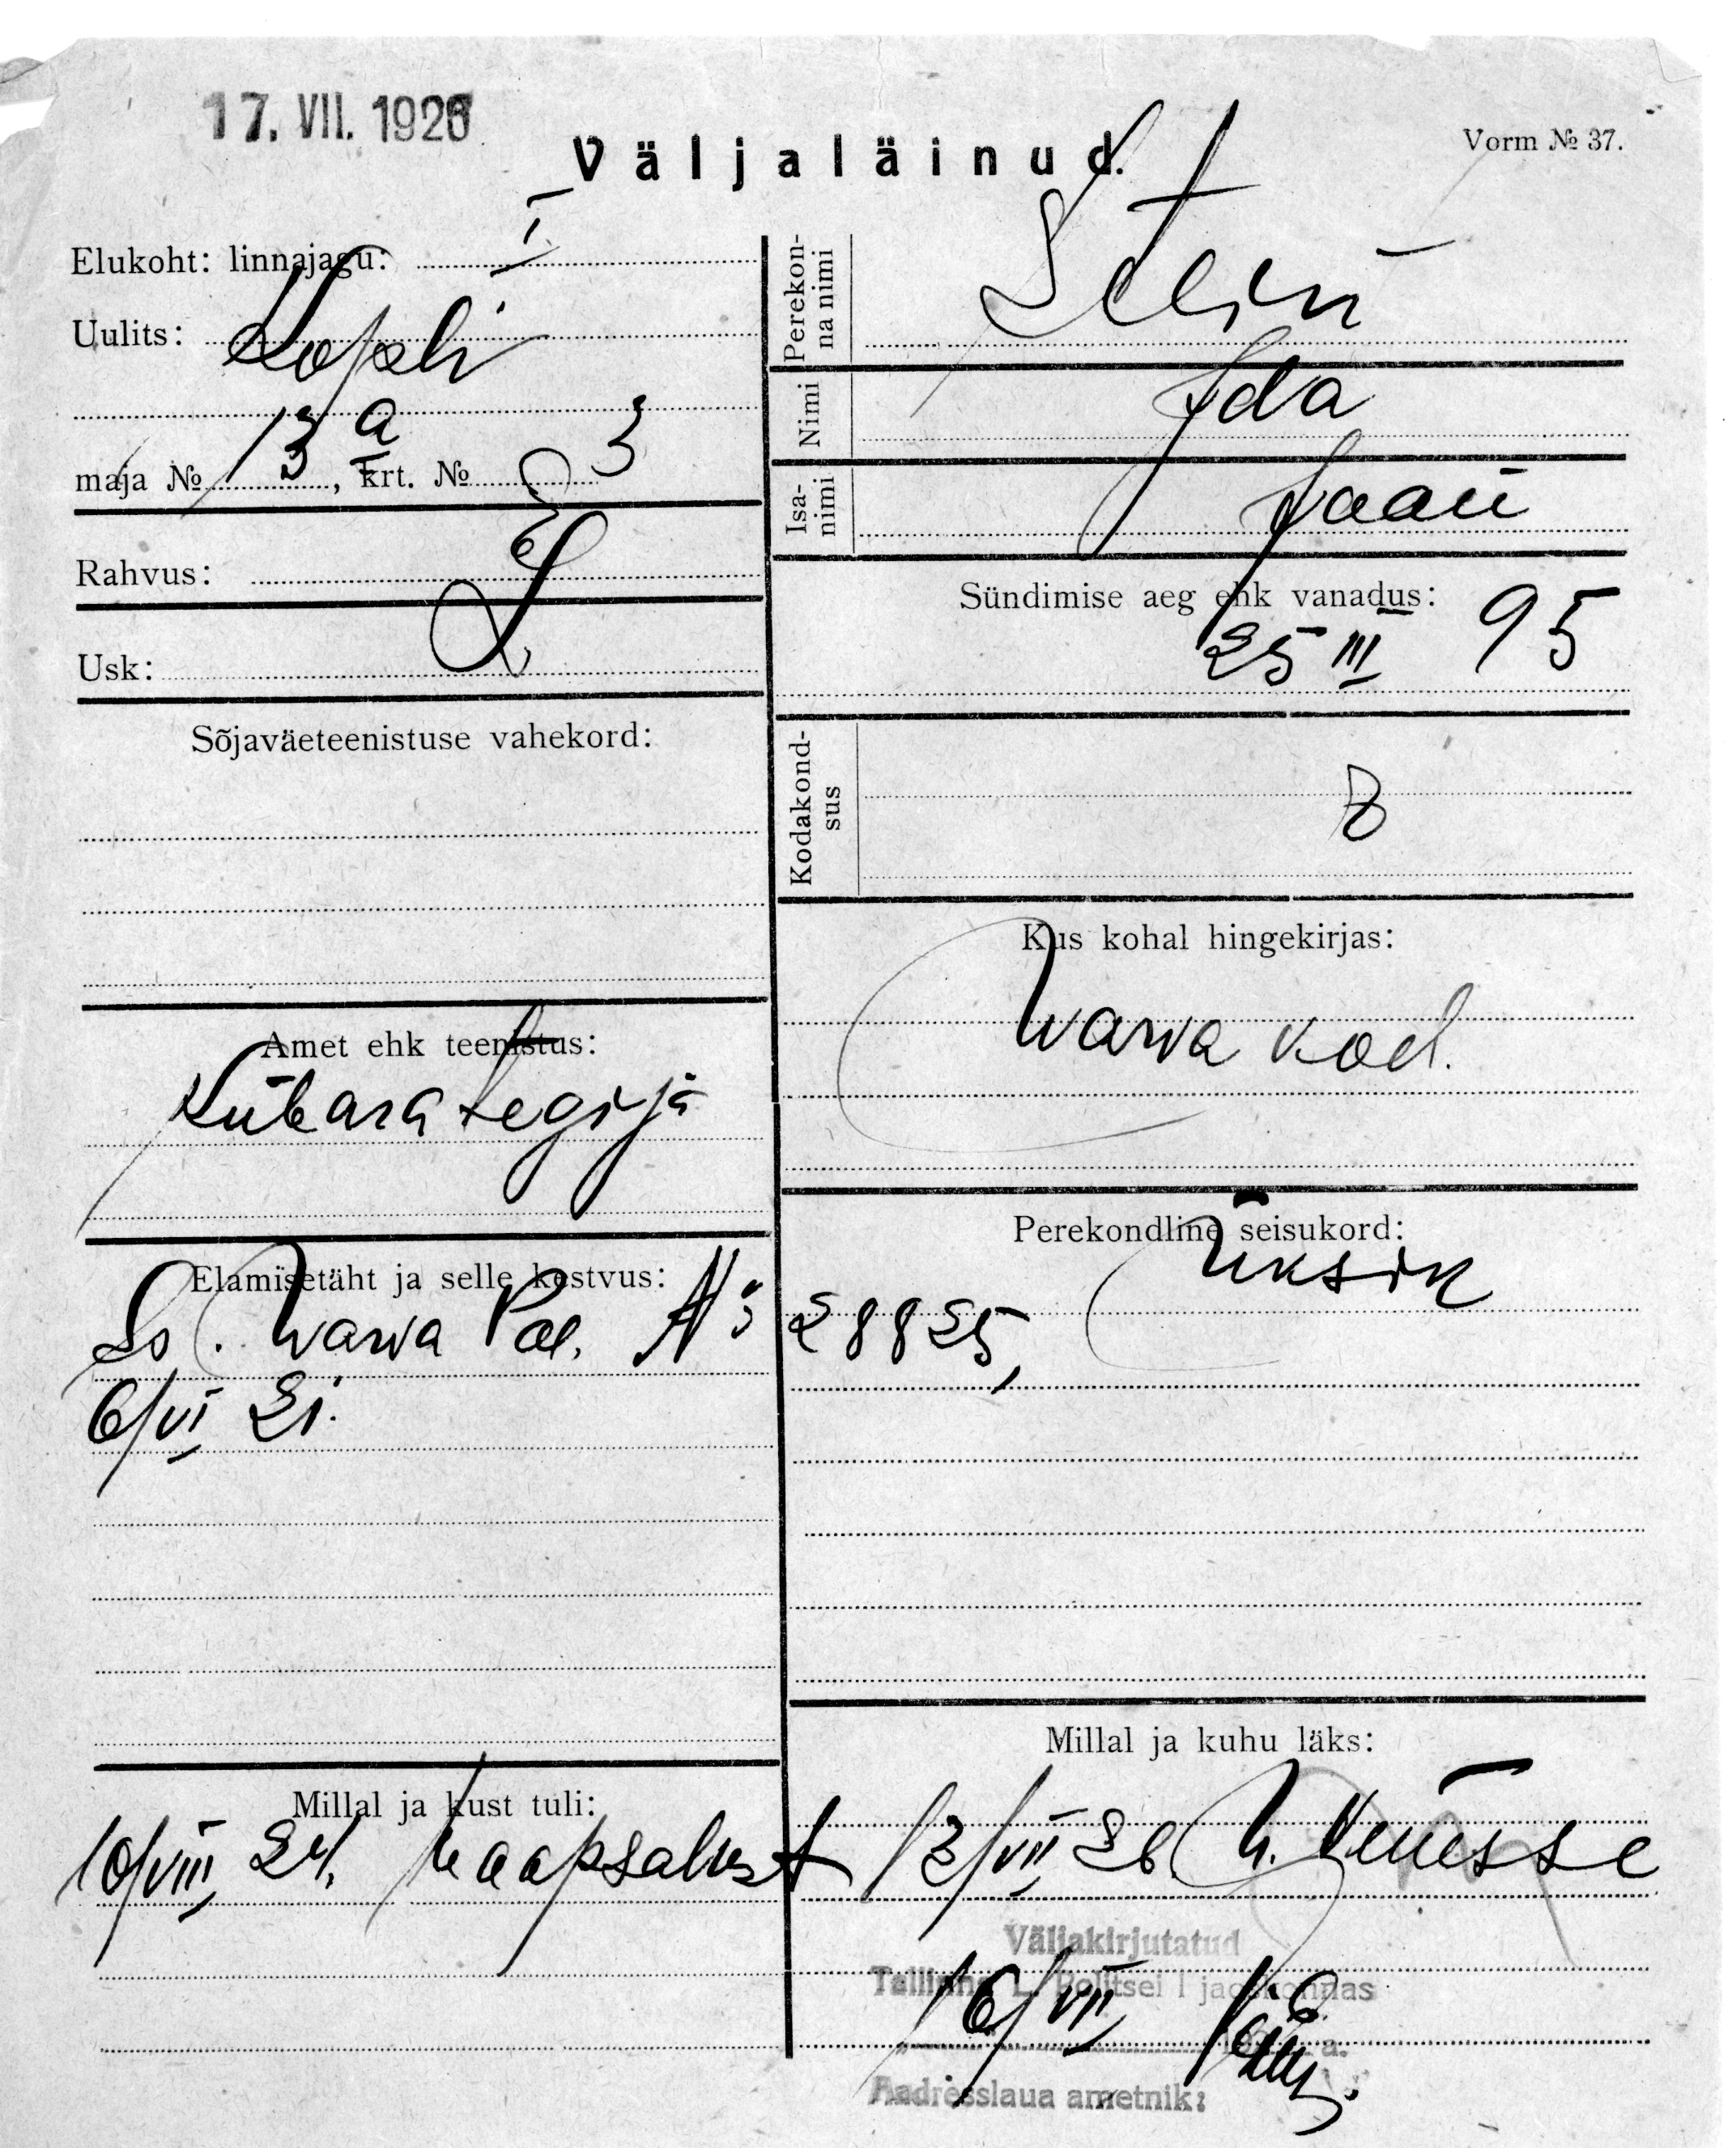 17. VII. 1926
Väljaläinud.
Vorm № 37.
Elukoht: linnajagu: I
Uulits: Kopli
maja № 13a, krt. № 3
Rahvus: E
Usk: L
Sõjaväeteenistuse vahekord:
Amet ehk teenistus:
Kübara tegija
Elamisetäht ja selle kestvus:
Is. Narva Pol. № 28825,
6/VI 21.
Millal ja kust tuli:
10/VIII 24. Haapsalust
Perekonna nimi
Stein
Nimi
Ida
Isanimi
Jaan
Sündimise aeg ehk vanadus:
25 III 95
Kodakondsus
E
Kus kohal hingekirjas:
Narva kod.
Perekondline seisukord:
Üksik
Millal ja kuhu läks:
12/VII 26 N. Nõmme
Väljakirjutatud
Tallinna L. Politsei I jaoskonnas
16/VII 26
192 a.
Aadresslaua ametnik: